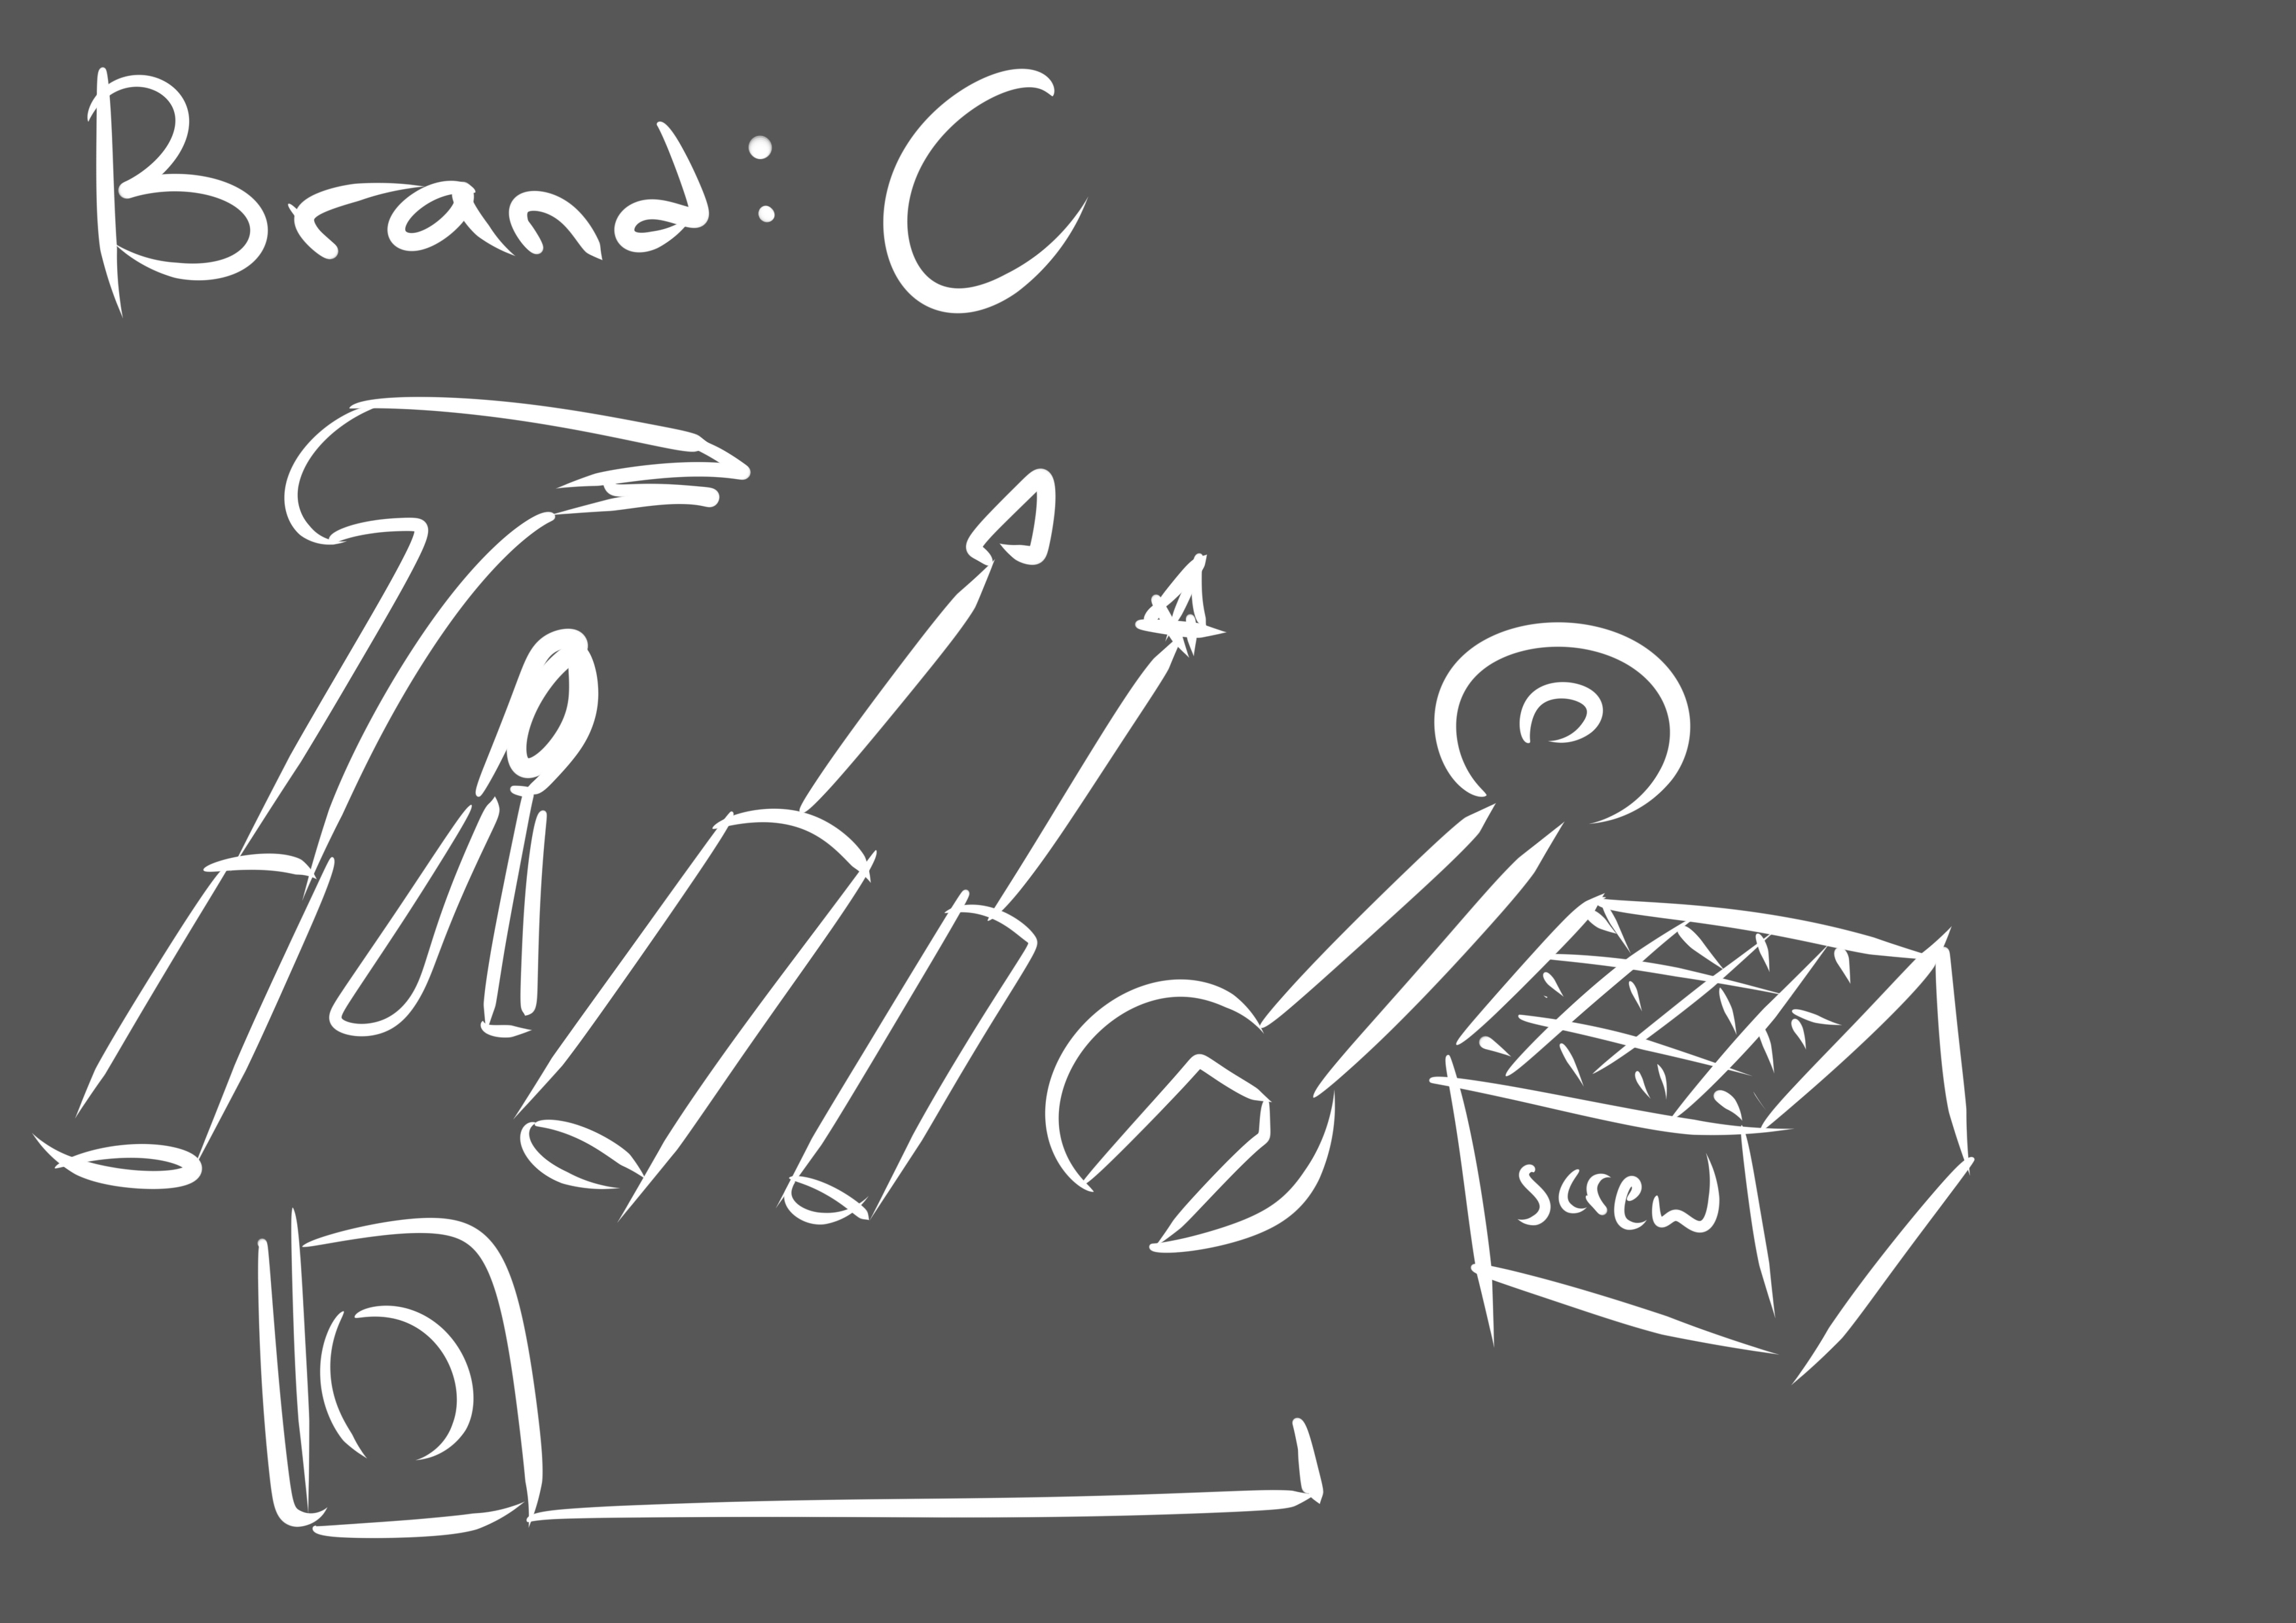 Brand: C
Screw